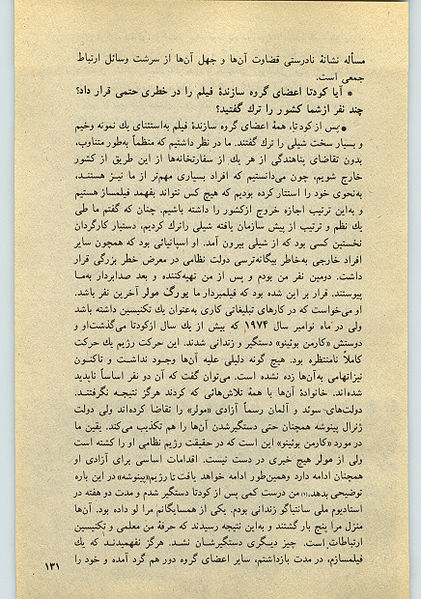 مسأله نشانهٔ نادرستی قضاوت آن‌ها و جهل آن‌ها از سرشت وسائل ارتباط
جمعی است.
• آیا کودتا اعضای گروه سازندهٔ فیلم را در خطری حتمی قرار داد؟
چند نفر ازشما کشور را ترك گفتید؟
• پس از کودتا، همهٔ اعضای گروه سازندهٔ فیلم به‌استثنای یك نمونه وخیم
و بسیار سخت شیلی را ترك گفتند. ما در نظر داشتیم که منظماً به‌طور متناوب،
بدون تقاضای پناهندگی از هر یك از سفارتخانه‌ها از این طریق از کشور
خارج شویم، چون می‌دانستیم که افراد بسیاری مهم‌تر از ما نیز هستند،
به‌نحوی خود را استتار کرده بودیم که هیچ کس نتواند بفهمد فیلمساز هستیم
و به‌این ترتیب اجازه خروج ازکشور را داشته باشیم. چنان که گفتم ما طی
یك نظم و ترتیب از پیش سازمان یافته شیلی راترك کردیم، دستیار کارگردان
نخستین کسی بود که از شیلی بیرون آمد. او اسپانیائی بود که همچون سایر
افراد خارجی به‌خاطر بیگانه‌ترسی دولت نظامی در معرض خطر بزرگی قرار
داشت. دومین نفر من بودم و پس از من تهیه‌کننده و بعد صدابردار به‌ما
پیوستند. قرار بر این شده بود که فیلمبردار ما یورگ مولر آخرین نفر باشد.
او می‌خواست که در کارهای تبلیغاتی کاری به‌عنوان یك تکنیسین داشته باشد
ولی در ماه نوامبر سال ۱۹۷۴ که بیش از یك سال ازکودتا می‌گذشت‌او و
دوستش «کارمن بوئینو» دستگیر و زندانی شدند. این حرکت رژیم یك حرکت
کاملاً نامنتظره بود. هیچ گونه دلیلی علیه آن‌ها وجود نداشت و تاکنون
نیزاتهامی به‌آن‌ها زده نشده است. می‌توان گفت که آن دو نفر اساساً ناپدید
شده‌اند. خانوادهٔ آن‌ها با همهٔ تلاش‌هائی که کردند هرگز نتیجه نگرفتند.
دولت‌های سوئد و آلمان رسماً آزادی «مولر» را تقاضا کرده‌اند ولی دولت
ژنرال پینوشه همچنان حتی دستگیرشدن آن‌ها را هم تکذیب می‌کند. یقین ما
در مورد «کارمن بوئینو» این است که در حقیقت رژیم نظامی او را کشته است
ولی از مولر هیچ خبری در دست نیست. اقدامات اساسی برای آزادی او
همچنان ادامه دارد وهمین‌طور ادامه خواهد یافت تا رژیم«پینوشه» در این باره
توضیحی بدهد.(۱) من درست کمی پس از کودتا دستگیر شدم و مدت دو هفته در
استادیوم ملی سانتیاگو زندانی بودم. یکی از همسایگانم مرا لو داده بود. آن‌ها
منزل مرا پنج بار گشتند و به‌این نتیجه رسیدند که حرفهٔ من معلمی و تکنیسین
ارتباطات است. چیز دیگری دستگیرشان نشد. هرگز نفهمیدند که یك
فیلمسازم، در مدت بازداشتم، سایر اعضای گروه دور هم گرد آمده و خود را
۱۳۱